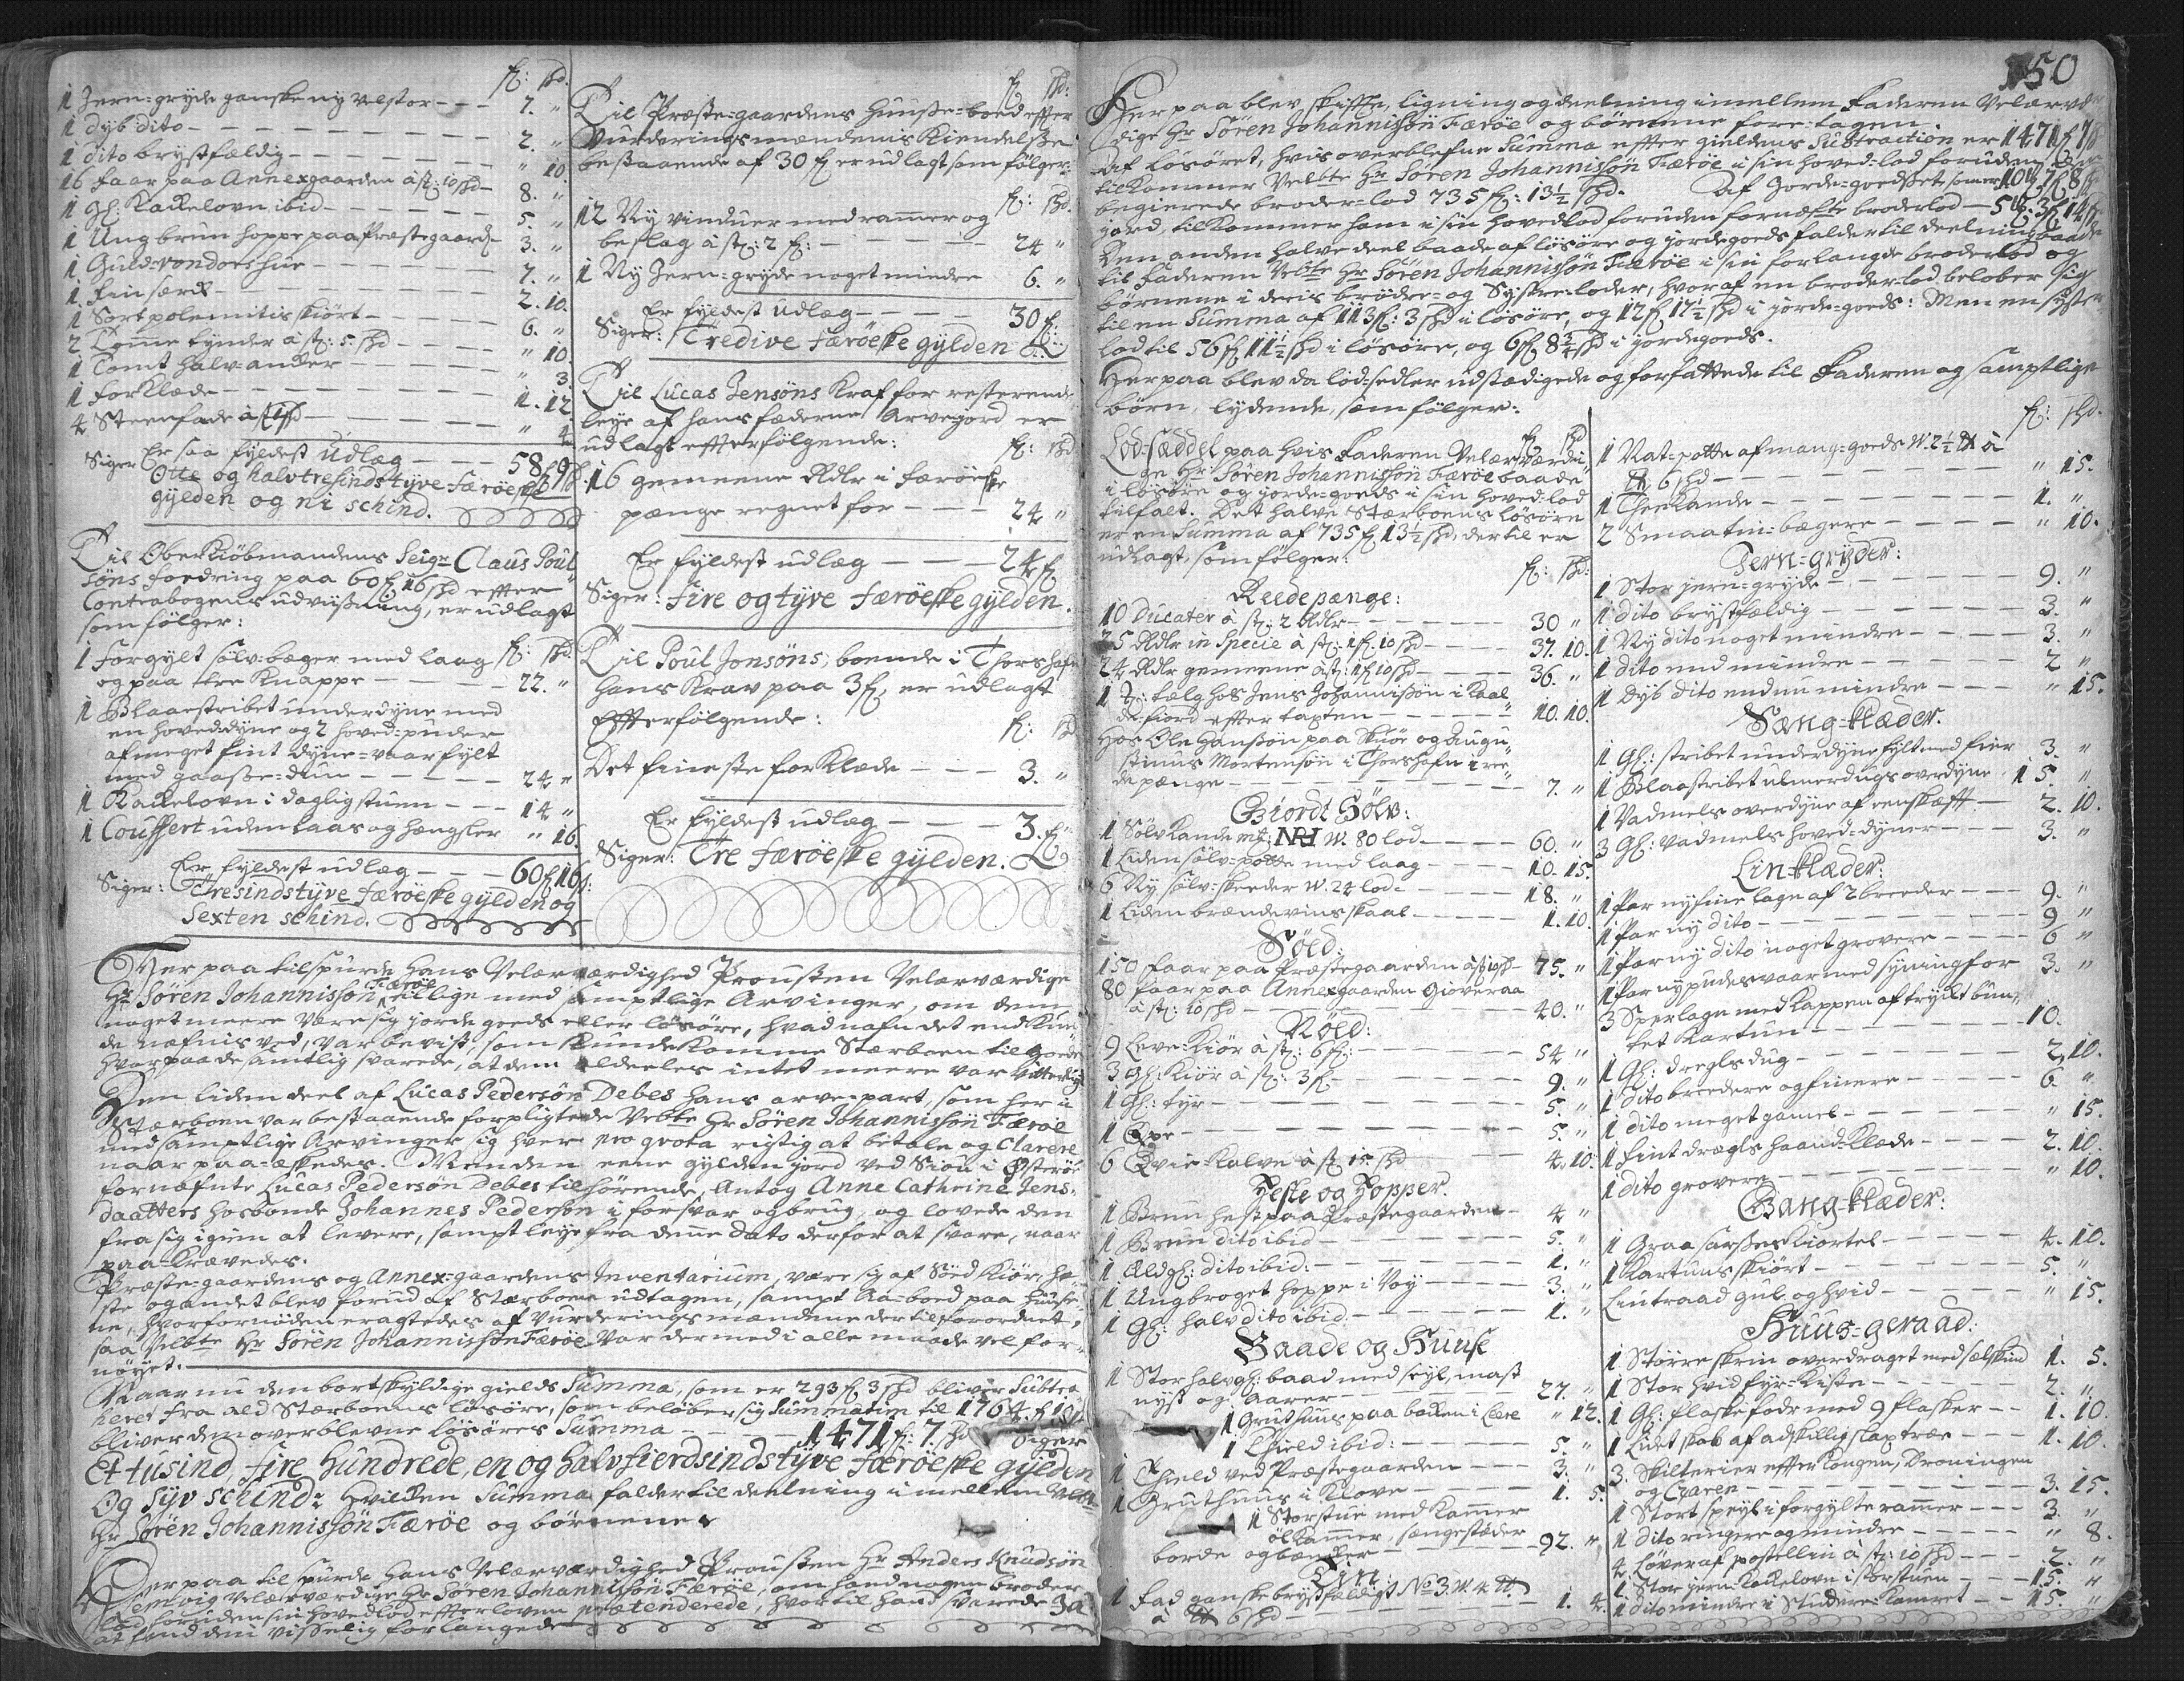 fl: shd.
1 Jern-gryde ganske ny velstor - - - 7. "
1 dyb dito - - - 2. "
1 dito brystfældig - - - " 10.
16 faar paa Annexgaarden à st: 10 shd - 8. "
1 gl: Kackelovn ibid - - - 5. "
1 Ung brun hoppe paa Præstegaard - 3. "
1 Guld-vondors hue - - - 7. "
1 fin særk - - - 2. 10.
1 Sort polemitis skiört - - - 6. "
2 Tomme tynder à st: 5 shd - - - " 10.
1 Tomt halv-ancker - - - " 3.
1 forklæde - - - 1. 12
4 Steenfade à st 1 shd - - - " 4
Er saa fyldest Udlæg - - - 58 fl 9 shd
Siger Otte og halvtresindstyve færöeske
gylden og ni schind.
Til Oberkiöbmandens Seigr Claus Poul
söns fordring paa 60 fl 16 shd effter
Contrabogens udviisning, er udlagt
som følger:
fl: shd.
1 forgylt sölv-bæger med laag
og paa tre Knappe - - - 22. "
1 Blaastribet underdyne med
en hoveddyne og 2 hoved-puder
af meget fint dyne-vaar fylt
med gaasse-duun - - - 24 "
1 Kackelovn i daglig stuen - - - 14 "
1 Couffert uden laas og hængsler " 16.
Er fyldest udlæg - - - 60 fl 16 s:
Siger: Tresindstyve færöeske gylden og
Sexten schind.
fl: shd:
Til Præste-gaardens huusse-boed effter
Vurderingsmændenis Kiendelsse
bestaaende af 30 fl er udlagt som fölger:
fl: shd.
12 Ny vinduer med rammer og
beslag à st: 2 fl: - - - 24 "
1 Ny Jern-gryde noget mindre 6. "
Er fyldest Udlæg - - - 30 fl:
Siger: Tredive færöeske gylden
Til Lucas Jensöns Kraf for resterende
leye af hans fæderne Arvejord er
udlagt effterfølgende: fl: shd
16 gemeene Rdlr i færöeske
penge regnet for - - - 24 "
Er fyldest udlæg - - - 24 fl
Siger: fire og tyve færöeske gylden.
Til Poul Jonsöns, boende i Thorshafn
hans Krav paa 3 fl, er udlagt
Effterfølgende: fl: shd
Det fineste forklæde - - - 3. "
Er fyldest udlæg - - - 3. fl
Siger: Tre færöeske gylden.
Her paa tilspurde hans Velærværdighed Prousten Velærværdige
Hr Sören Johannissön Færöe tillige med samptlige Arvinger, om dem
noget meere være sig jorde goeds eller lösöre, hvad nafn det end kun-
de næfnis ved, var bevist, som kunde komme Stærboen til goede
hvorpaa de samtlig svarede, at dem aldeeles intet meere var vitterligt
Den liden deel af Lucas Pedersön Debes hans arve-part, som her i
Stærboen var bestaaende forpligtede Velbte Hr Sören Johannissön Færöe
med samptlige Arvinger sig hver pro qvota rigtig at betale og Clarere
naar paa-æskedes. Men den eene gylden jord ved Siou i Österöe
fornæfnte Lucas Pedersön Debes tilhörende, Antog Anne Cathrine Jens-
daatters hosbonde Johannes Pedersön i forsvar og brug, og lovede den
fra sig igien at levere, sampt leye fra denne dato derfor at svare, naar
paa-krævedes.
Præste-gaardens og Annex-gaardens Inventarium, være sig af Söd Kiör, he-
ste og andet blev forud af Stærboen udtagen, sampt Aa-boed paa huusse-
ne, hvor fornöden eragtedes af Vurderingsmændene der til forordnet,
saa Velbte Hr Sören Johannissön Færöe var dermed i alle maade vel for-
nöyet.
Naar nu den bortskyldige gields Summa, som er 293 fl 3 shd bliver Subtra
heret fra ald Stærboens lösöre, som beløber sig Summatim til 1764 fl 10 shd
bliver den overblevne lösöres Summa - - - 1471 fl: 7 shd Siger
Et tusind, fire Hundrede, en og halvfierdsindstyve færöeske gylden
Og Syv schind: hvilcken Summa falder til deelning imellem Velbte
Hr Sören Johannissön Færöe og börnene.
Her paa tilspurde hans Velærværdighed Prousten Hr Anders Knudsön
Velærværdige Hr Sören Johannissön Færöe, om hand nogen broder
lod foruden sin hovedlod effter loven prætenderede, hvortil hand svarede Ja
at hand den visselig forlangede
150
Herpaa blev skiffte, ligning og deelning imellem Faderen Velærvær
dige Hr Sören Johannissön Færöe og börnene foretagen.
Af lösöret, hvis overblefne Summa effter gieldens Subtraction er 1471 fl 7 s
tilkommer Velbte Hr Sören Johannissön Færöe i sin hoved-lod foruden sin
begierede broder-lod 735 fl: 13½ shd. Af Jorde-goedset, som er
jord, tilkommer ham i sin hovedlod foruden fornæfnte broderlod
Den anden halve deel baade af lösöre og jordegoeds falder til deelning baade
til Faderen Velbte Hr Sören Johannissön Færöe i sin forlangde broderlod og
börnene i deris brödre- og Systre-loder, hvoraf en broder-lod beløber sig
til en Summa af 113 fl: 3 shd i lösöre, og 12 fl 17½ shd i jorde-goeds: Men en syster
lod til 56 fl 11½ shd i lösöre, og 6 fl 8¾ shd i jordegoeds.
Herpaa blev da lod-sedler udstædigede og forfattede til Faderen og samptlige
börn, lydende, som fölger:
Lod-Sæddel paa hvis Faderen Velærværdi-
ge Hr Sören Johannissön Færöe baade
i lösöre og jorde-goeds i sin hoved-lod
tilfalt. Det halve Stærboens lösöre
er en Summa af 735 fl 13½ shd, der til er
udlagt, som fölger:
fl: shd:
Reede penge:
10 Ducater à st: 2 Rdlr - - - 30 "
25 Rdlr in Specie à st: 1 fl. 10 shd - - - 37. 10.
24 Rdlr gemeene à st: 1 fl 10 shd - - - 36. "
1 tælg hos Jens Johannissön i Kaal
de-fiord effter taxten - - - 10. 10.
Hos Ole Hanssön paa Skuöe og Augu
stinus Mortensön i Thorshafn i ree
de penge - - - 7. "
Giordt Sölv:
1 Sölv Kande W. 80 lod - - - 60. "
1 Liden sölv-potte med laag - - - 10. 15.
6 Ny sölv-skeeder W. 24 lod - 18. "
1 Liden brændevins skaal - - - 1. 10.
Söed.
150 faar paa Præstegaarden à st 10 shd - 75. "
80 faar paa Annexgaarden Gioveraa
à st: 10 shd - - - 40. "
Nöed:
9 Leve-Kiör à st: 6 fl: - - - 54 "
3 gl: Kiör à st: 3 fl - - - 9. "
1 gl: tyr - - - 5. "
1 Oxe - - - 5. "
6 Qvie-Kalve à st 15 shd 4. 10.
Heste og Hopper.
1 Brun hest paa Præstegaarden - 4 "
1 Brun dito ibid - - - 5. "
1 Ald gl: dito ibid: - - - 1. "
1 Ung broget hoppe i Voy - - - 3. "
1 gl: halv dito ibid. - - - 1. "
Baade og Huuse
1 Stor halvgl: baad med seyl, mast
nyst og Aarer - - - 27. "
1 Gruthuus paa backen i Cære " 12.
1 Chield ibid: - - - 5. "
1 Chield ved Præstegaarden - - - 3. "
1 Gruthuus i Klove - - - 1. 5.
1 Storstue med Kammer
ölkammer, sængestæder
borde og bæncker - - - 92. "
Tin:
1 Fad ganske brystfældigt No 3. W. 4 ℔
à ℔ 6 shd - - - 1. 4.
fl: shd.
1 Nat-potte af mang-goeds W. 2½ ℔ à
℔ 6 shd - - - " 15.
1 Theekande - - - 1. "
2 Smaa tin-bægere - - - " 10.
Jern-gryder:
1 Stor jern-gryde - - - 9. "
1 dito brystfældig - - - 3. "
1 Ny dito noget mindre - - - 3. "
1 dito end mindre - - - 2 "
1 Dyb dito endnu mindre - - - " 15.
Sæng-klæder.
1 gl: stribet underdyne fylt med fier 3. "
1 Blaastribet olmerdugs overdyne 15. "
1 Vadmels overdyne af eenskefft - 2. 10.
3 gl: vadmels hoved-dyner - - - 3. "
Lin-klæder:
1 Par ny fine lagn af 2 breeder - - - 9. "
1 Par ny dito - - - 9 "
1 Par ny dito noget grovere - - - 6 "
1 Par ny pudesvaar med syning for 3. "
3 Sperlagn med Kappen af tryckt bun-
tet Kartun - - - 10.
1 gl: dregls dug - - - 2. 10.
1 dito breedere og finere - - - 6. "
1 dito meget gamel - - - " 15.
1 fint drægls haand-klæde - - - 2. 10.
1 dito grovere - - - " 10.
Gang-klæder:
1 Graa sarsses Kiortel - - - 4. 10.
1 Kartuns skiört - - - 5. "
Lintraad gul og hvid - - - " 15.
Huus-geraad:
1 Större skrin overdraget med sælskind 1. 5.
1 Stor hvid fyr-Kiste - - - 2. "
1 gl: flaske fodr med 9 flasker - - 1. 10.
1 Lidet skab af adskillig slag træe - - - 1. 10.
3 Skilterier effter Kongen, Droningen
og Czaren - - - 3. 15.
1 Stort speyl i forgylte ramer - - - 3. "
1 dito ringere og mindre - - - " 8.
4 Löver af postellin à st: 10 shd - - - 2. "
1 Stor jern-Kakelovn i storstuen - - - 15. "
1 dito mindre i Studere-Kamret - - 15. "